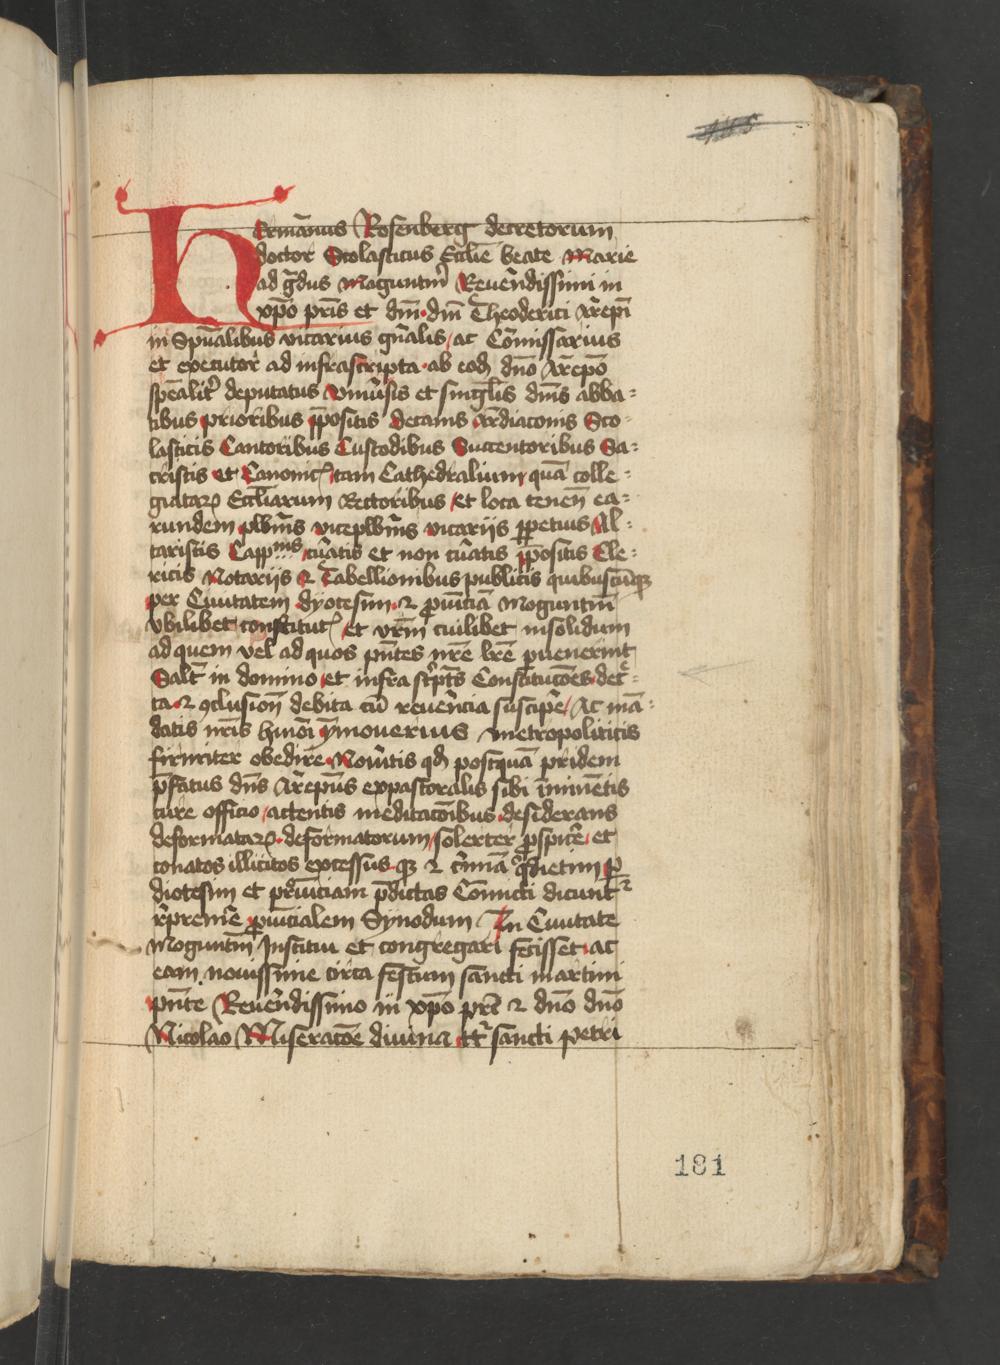 Hermānus Rosenberg decretorum
doctor Scolasticus Ecclīe beate Marie
ad g̃dus maguntiñ Reuẽndissimi in
xp̄o pr̄is et dn̄i dn̄i Theoderici Ar̄epī
in Sp̄ualibus vicarius gn̄alis ac Cōmissarius
et executor ad infrascripta ab eodē dn̄o Ar̄epō
spēalit̃ deputatus vniũsis et sing̃lis dn̄is abba=
tibus prioribus p̄positis decanis Ardiaconis Sco-
lasticis Cantoribus Custodibus Succentoribus Sa=
cristis et Canonic̃ tam Cathedralium quā colle=
giatarꝝ Ecclīarum Rectoribus et loca tenen̄ ea=
rundem plbñis viceplbñis vicariis ꝑpetuis Al=
taristis Capp̄nis cũatis et non cũatis p̄positis Cle=
ricis Notariis ⁊ Tabellionibus publicis quibuscūqꝫ
per Ciuitatem dyocesim ⁊ ꝓuīciā Moguntiñ
vbilibet constitut̃ et vr̄m cuilibet insolidum
ad quem vel ad quos pn̄tes nr̄e lr̄e ꝑuenerint
Salt̃ in domino et infrasc̃pt̃s Constitucōes dec̃-
ta ⁊ ꝯclusioñ debita cū reuẽncia suscipe᷑ Ac mā=
datis nr̄is hm̄oi ymouerius metropoliticis
firmiter obedire Noũitis qd̄ postquā pridem
p̄fatus dn̄s Ar̄epūs ex pastoralis sibi īminētis
cure officio attentis meditacōibus desiderans
deformatarꝝ deformatorum solerter ꝓspice᷑ et
conatos illicitos excessus qꝫ ⁊ c̃minā q̊ꝫ dietim ꝑ
diocesim et prouīciam p̄dictas Cōmitti dicunt᷑
rep̃me᷑ ꝓuīcialem Synodum In Ciuitate
Moguntiñ Institui et congregari fecisset ac
eam nouissime circa festum sancti martini
pn̄te Reuẽndissimo in xp̄o pr̄e ⁊ dn̄o dn̄o
Nicolao Miseracōe diuina tt̃ sancti petri
181